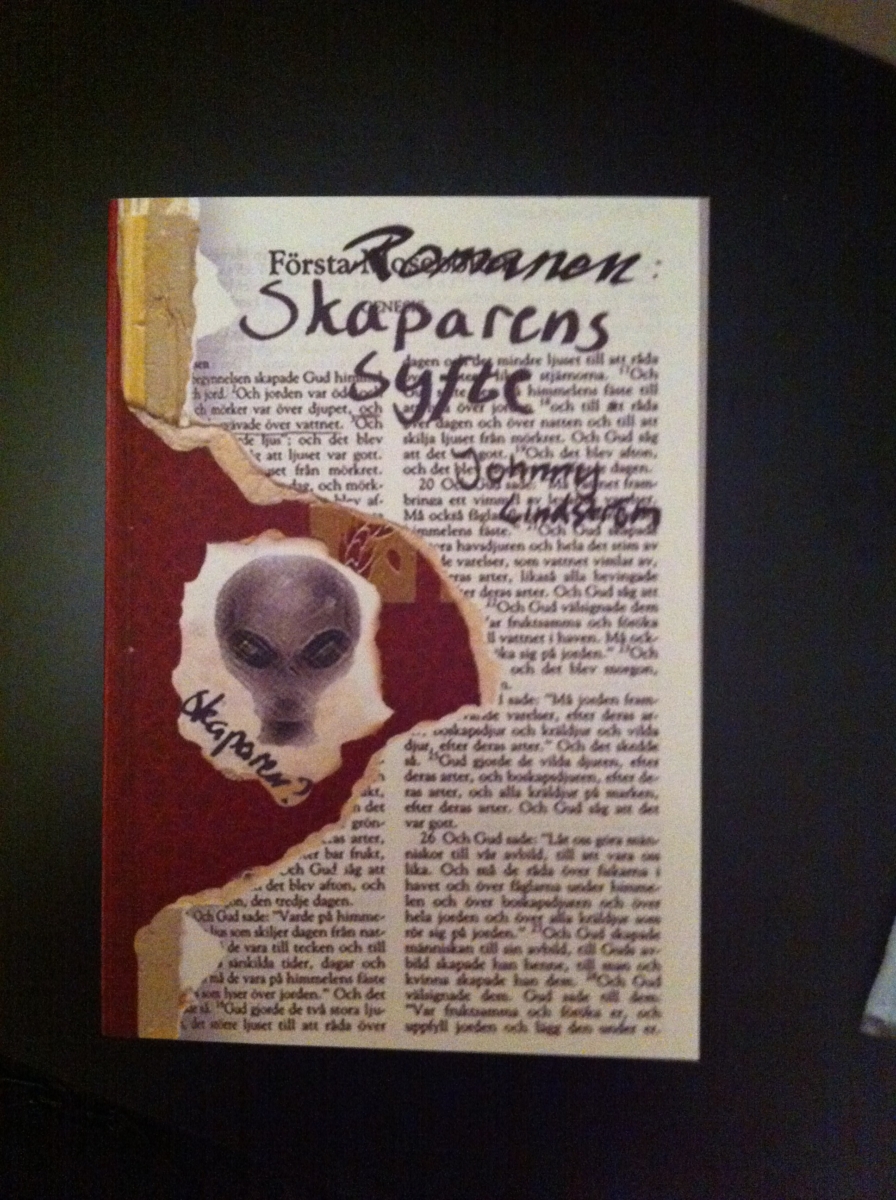 Romanen:
Första
GENESIS
Skaparens
Syfte
Johnny
Lindström
Skaparen?
begynnelsen skapade Gud himmel
h jord. ²Och jorden var öde
ch mörker var över djupet, och
svävade över vattnet. ³Och
de ljus"; och det blev
g att ljuset var gott.
uset från mörkret.
dag, och mörk-
blev af-
akt,
n det
grön-
as arter,
er bar frukt,
Och Gud såg att
det blev afton, och
on, den tredje dagen.
Och Gud sade: "Varde på himme-
ljus som skiljer dagen från nat-
de vara till tecken och till
särskilda tider, dagar och
må de vara på himmelens fäste
som lyser över jorden." Och det
så. ¹⁶Gud gjorde de två stora lju-
det större ljuset till att råda över
dagen och det mindre ljuset till att råda
stjärnorna. ¹⁷Och
himmelens fäste till
över jor ¹⁸och till att råda
över dagen och över natten och till att
skilja ljuset från mörkret. Och Gud såg
att det gott. ¹⁹Och det blev afton,
och det blev dagen.
20 Och Gud sade: "Må net fram-
bringa ett vimmel av
Må också fåglar
himmelens fäste." ²¹Och Gud skapade
ra havsdjuren och hela det stim av
de varelser, som vattnet vimlar av,
eras arter, likaså alla bevingade
er deras arter. Och Gud såg att
²²Och Gud välsignade dem
ar fruktsamma och föröka
ll vattnet i haven. Må ock-
öka sig på jorden." ²³Och
och det blev morgon,
n.
d sade: "Må jorden fram-
varelser, efter deras ar-
boskapsdjur och kräldjur och vilda
djur, efter deras arter." Och det skedde
så. ²⁵Gud gjorde de vilda djuren, efter
deras arter, och boskapsdjuren, efter de-
ras arter, och alla kräldjur på marken,
efter deras arter. Och Gud såg att det
var gott.
26 Och Gud sade: "Låt oss göra män-
niskor till vår avbild, till att vara oss
lika. Och må de råda över fiskarna i
havet och över fåglarna under himme-
len och över boskapsdjuren och över
hela jorden och över alla kräldjur som
rör sig på jorden." ²⁷Och Gud skapade
människan till sin avbild, till Guds av-
bild skapade han henne, till man och
kvinna skapade han dem. ²⁸Och Gud
välsignade dem. Gud sade till dem:
"Var fruktsamma och föröka er, och
uppfyll jorden och lägg den under er.